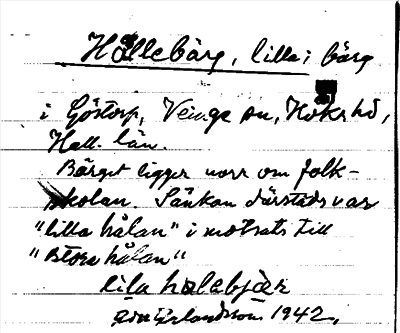 Hållebärg, lilla; bärg
i Göstorp, Veinge sn, Höks hd,
Hall. län.
Bärget ligger norr om folk-
skolan. Sänkan därstäds var
"lilla hålan" i motsats till
"Stora hålan"
lila holebjär
Erlandsson 1942.